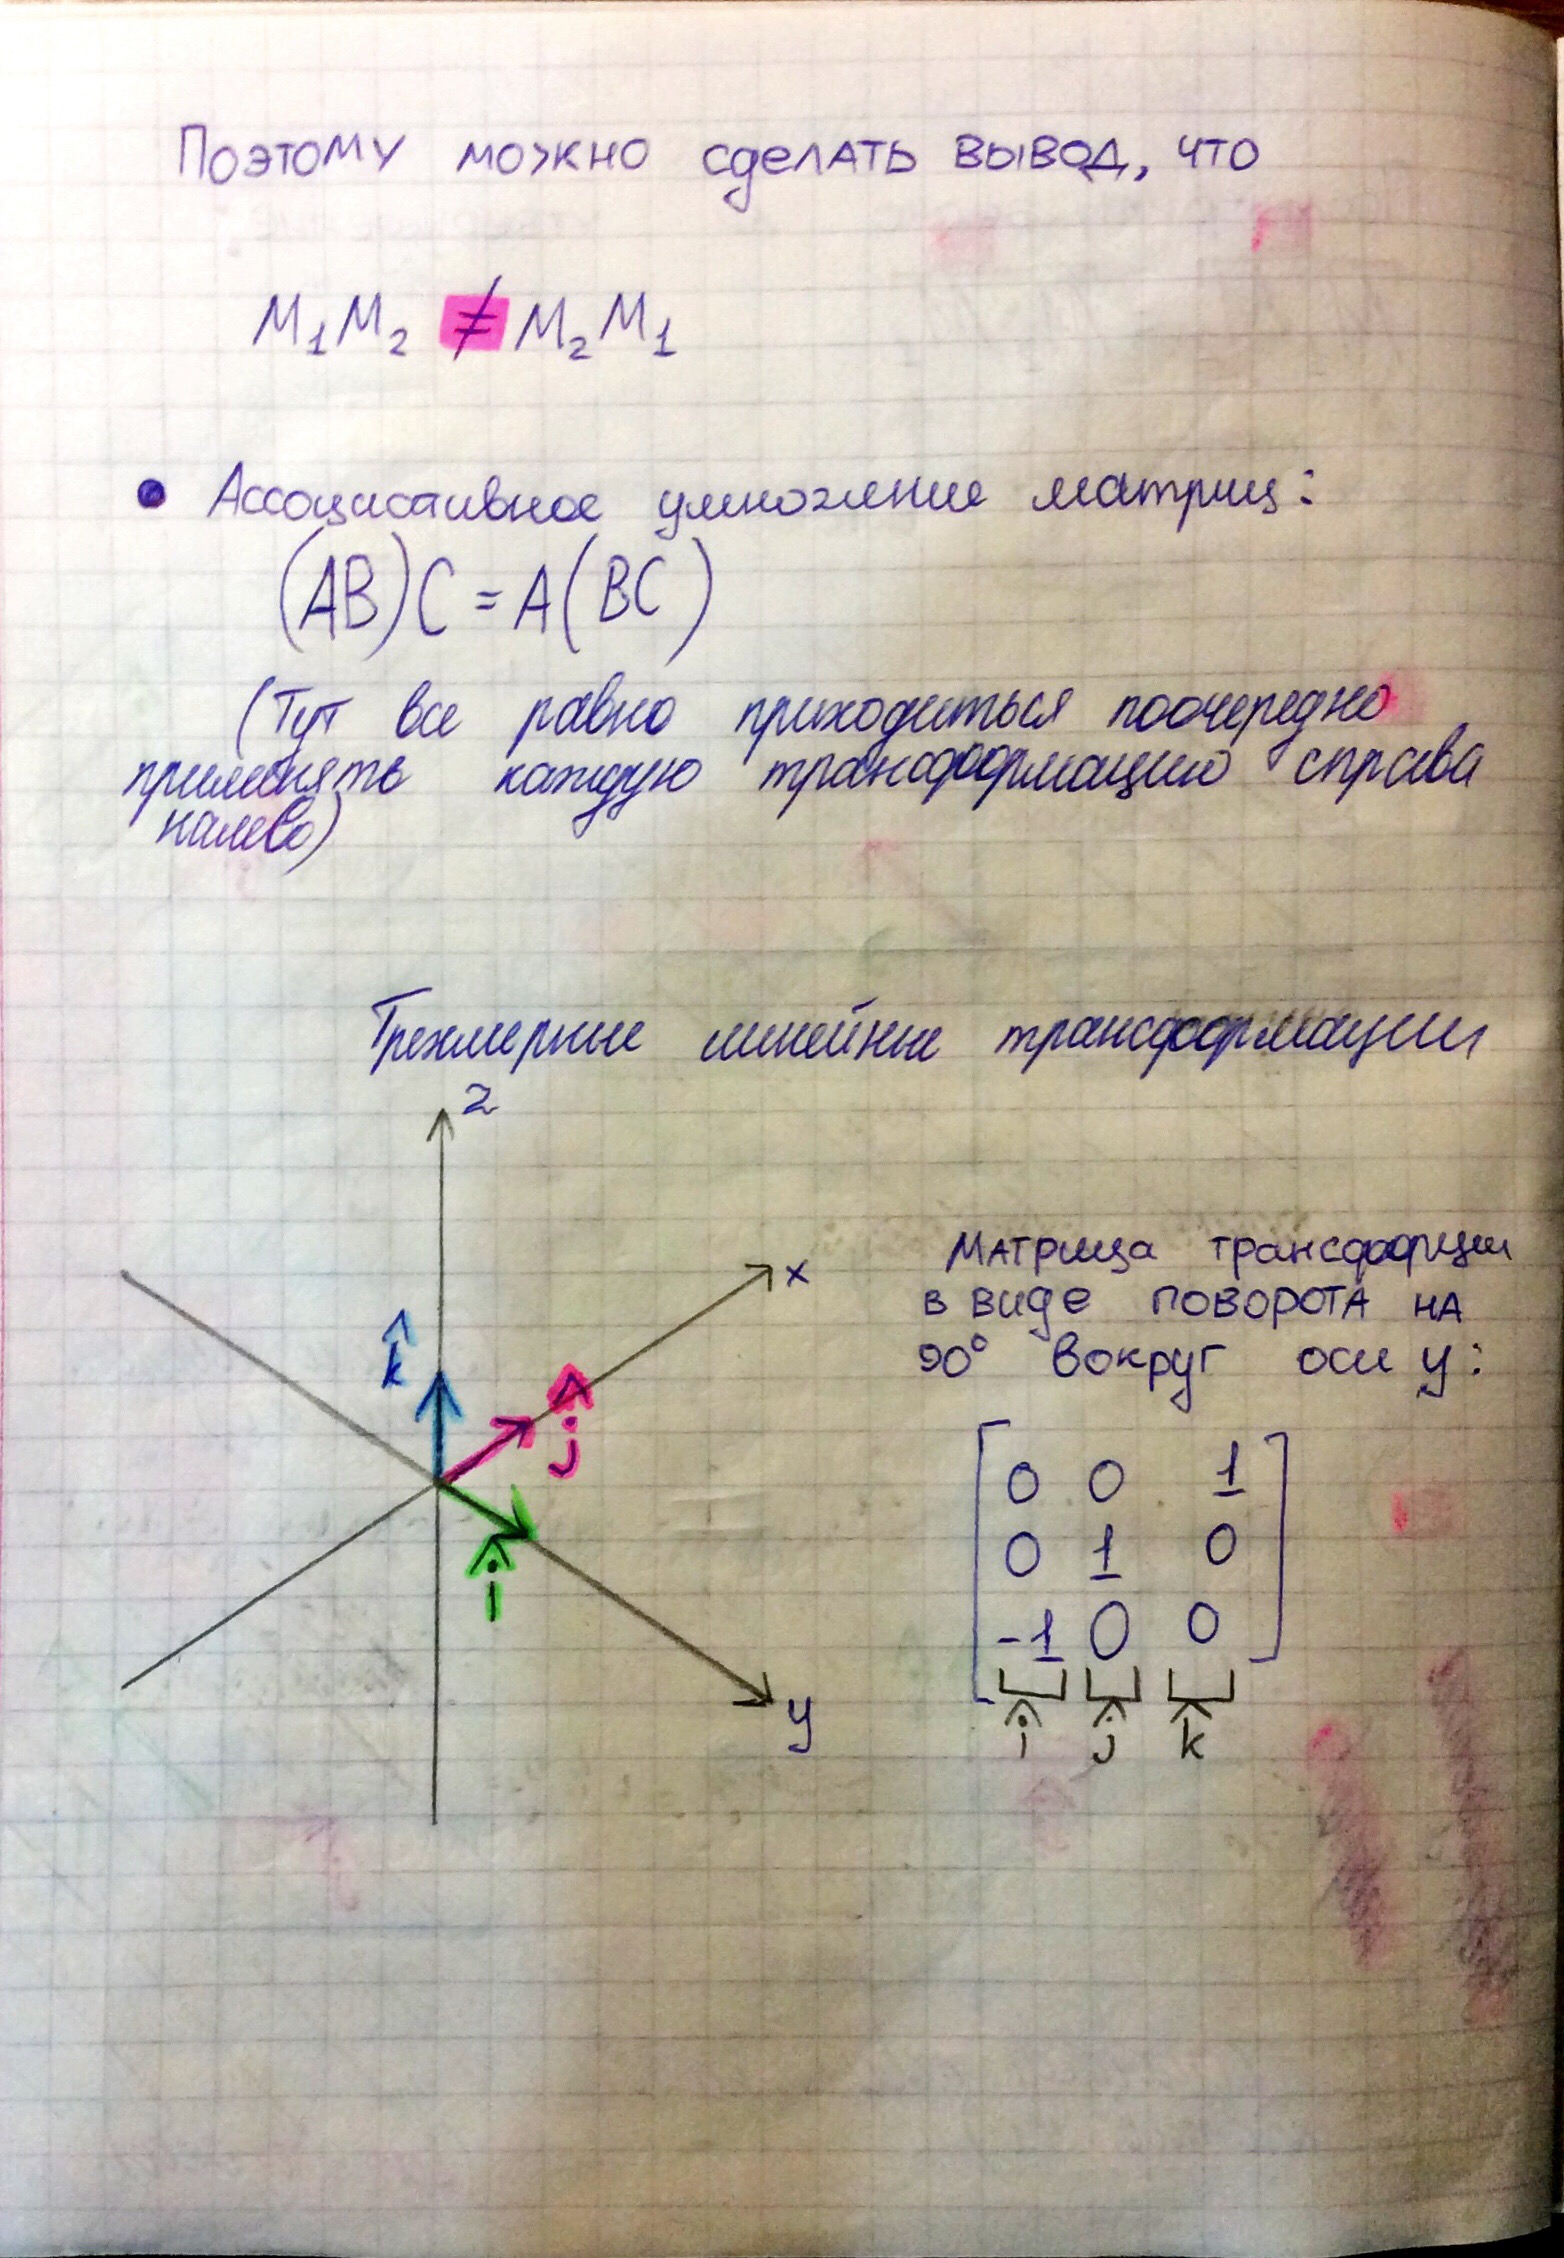 Поэтому можно сделать вывод, что
M₁M₂ ≠ M₂M₁
• Ассоциативное умножение матриц:
(AB)C = A(BC)
(Тут все равно приходиться поочередно
применять каждую трансформацию справа
налево)
Трехмерные линейные трансформации
z
x
k̂
ĵ
î
y
Матрица трансформции
в виде поворота на
90° вокруг оси y:
0 0 1
0 1 0
-1 0 0
î ĵ k̂